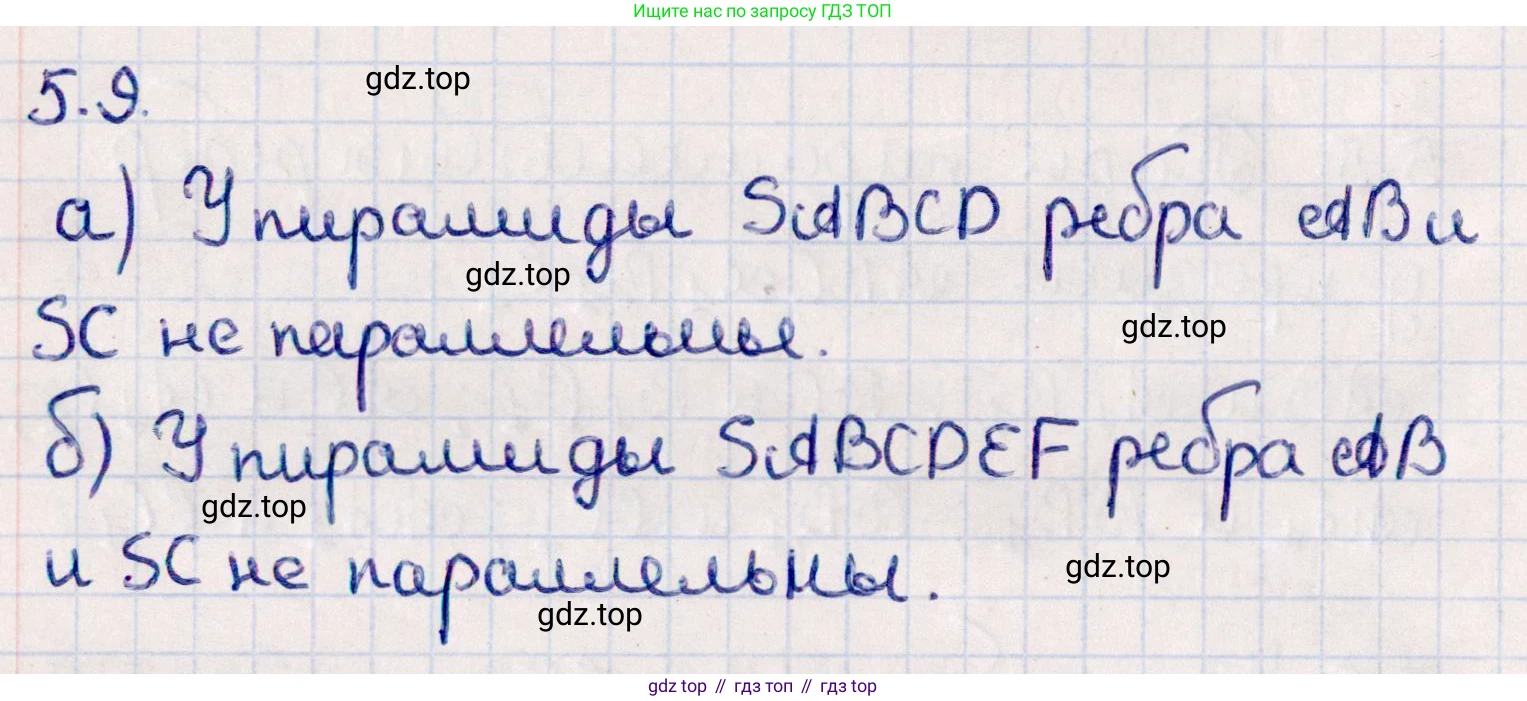 Ищите нас по запросу ГДЗ ТОП
5.9.
gdz.top
а) У пирамиды SABCD ребра AB и
gdz.top
SC не параллельны.
gdz.top
б) У пирамиды SABCDEF ребра AB
gdz.top
и SC не параллельны.
gdz.top
gdz.top
gdz top // гдз топ // гдз top